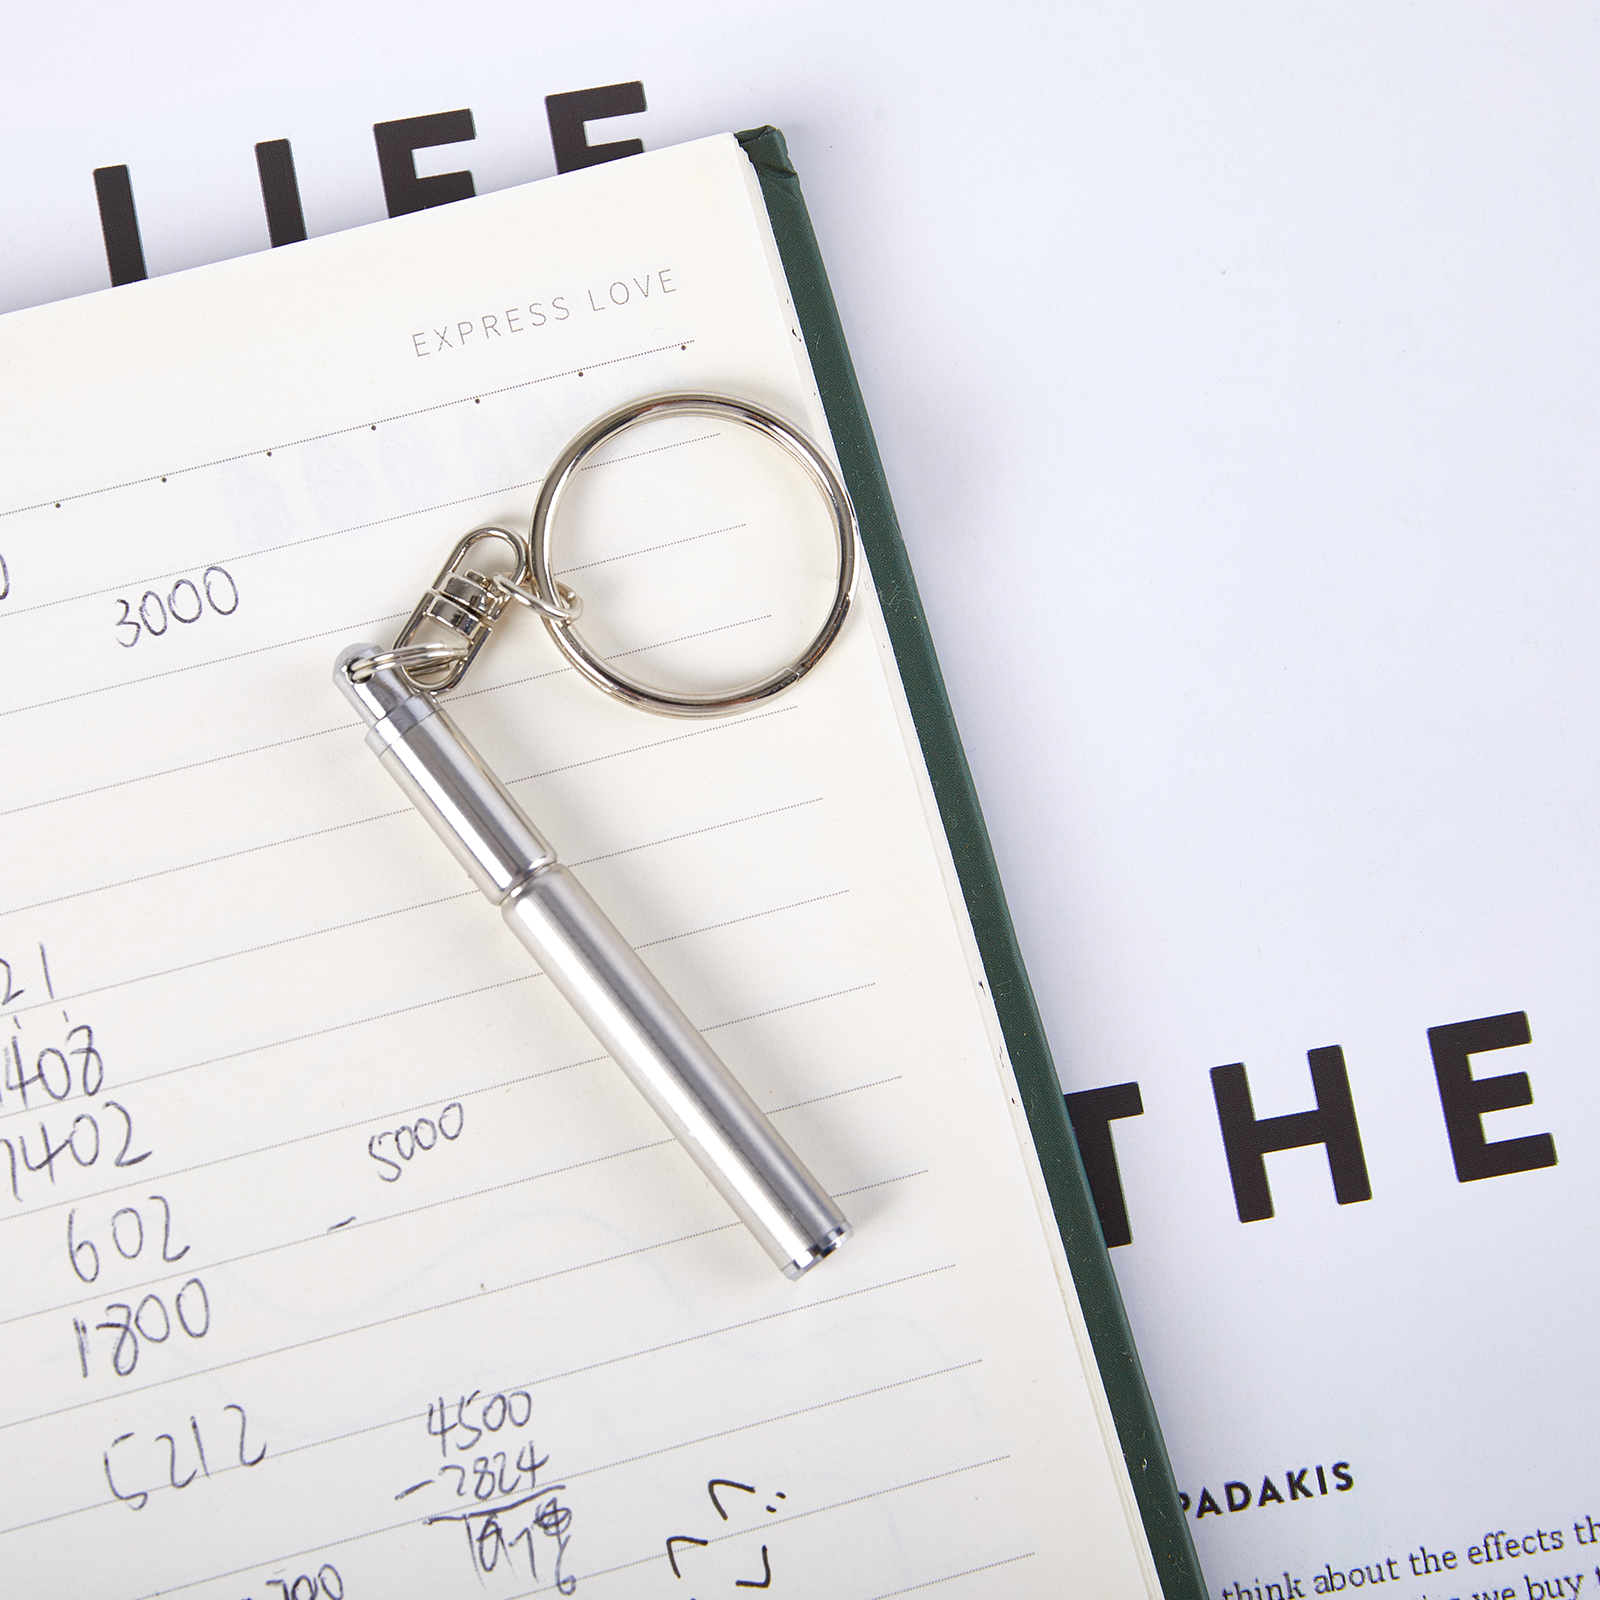 LIFE
EXPRESS LOVE
3000
21
1408
7402
5000
602
1800
5212
4500
-2824
1676
THE
PADAKIS
think about the effects th
we buy t